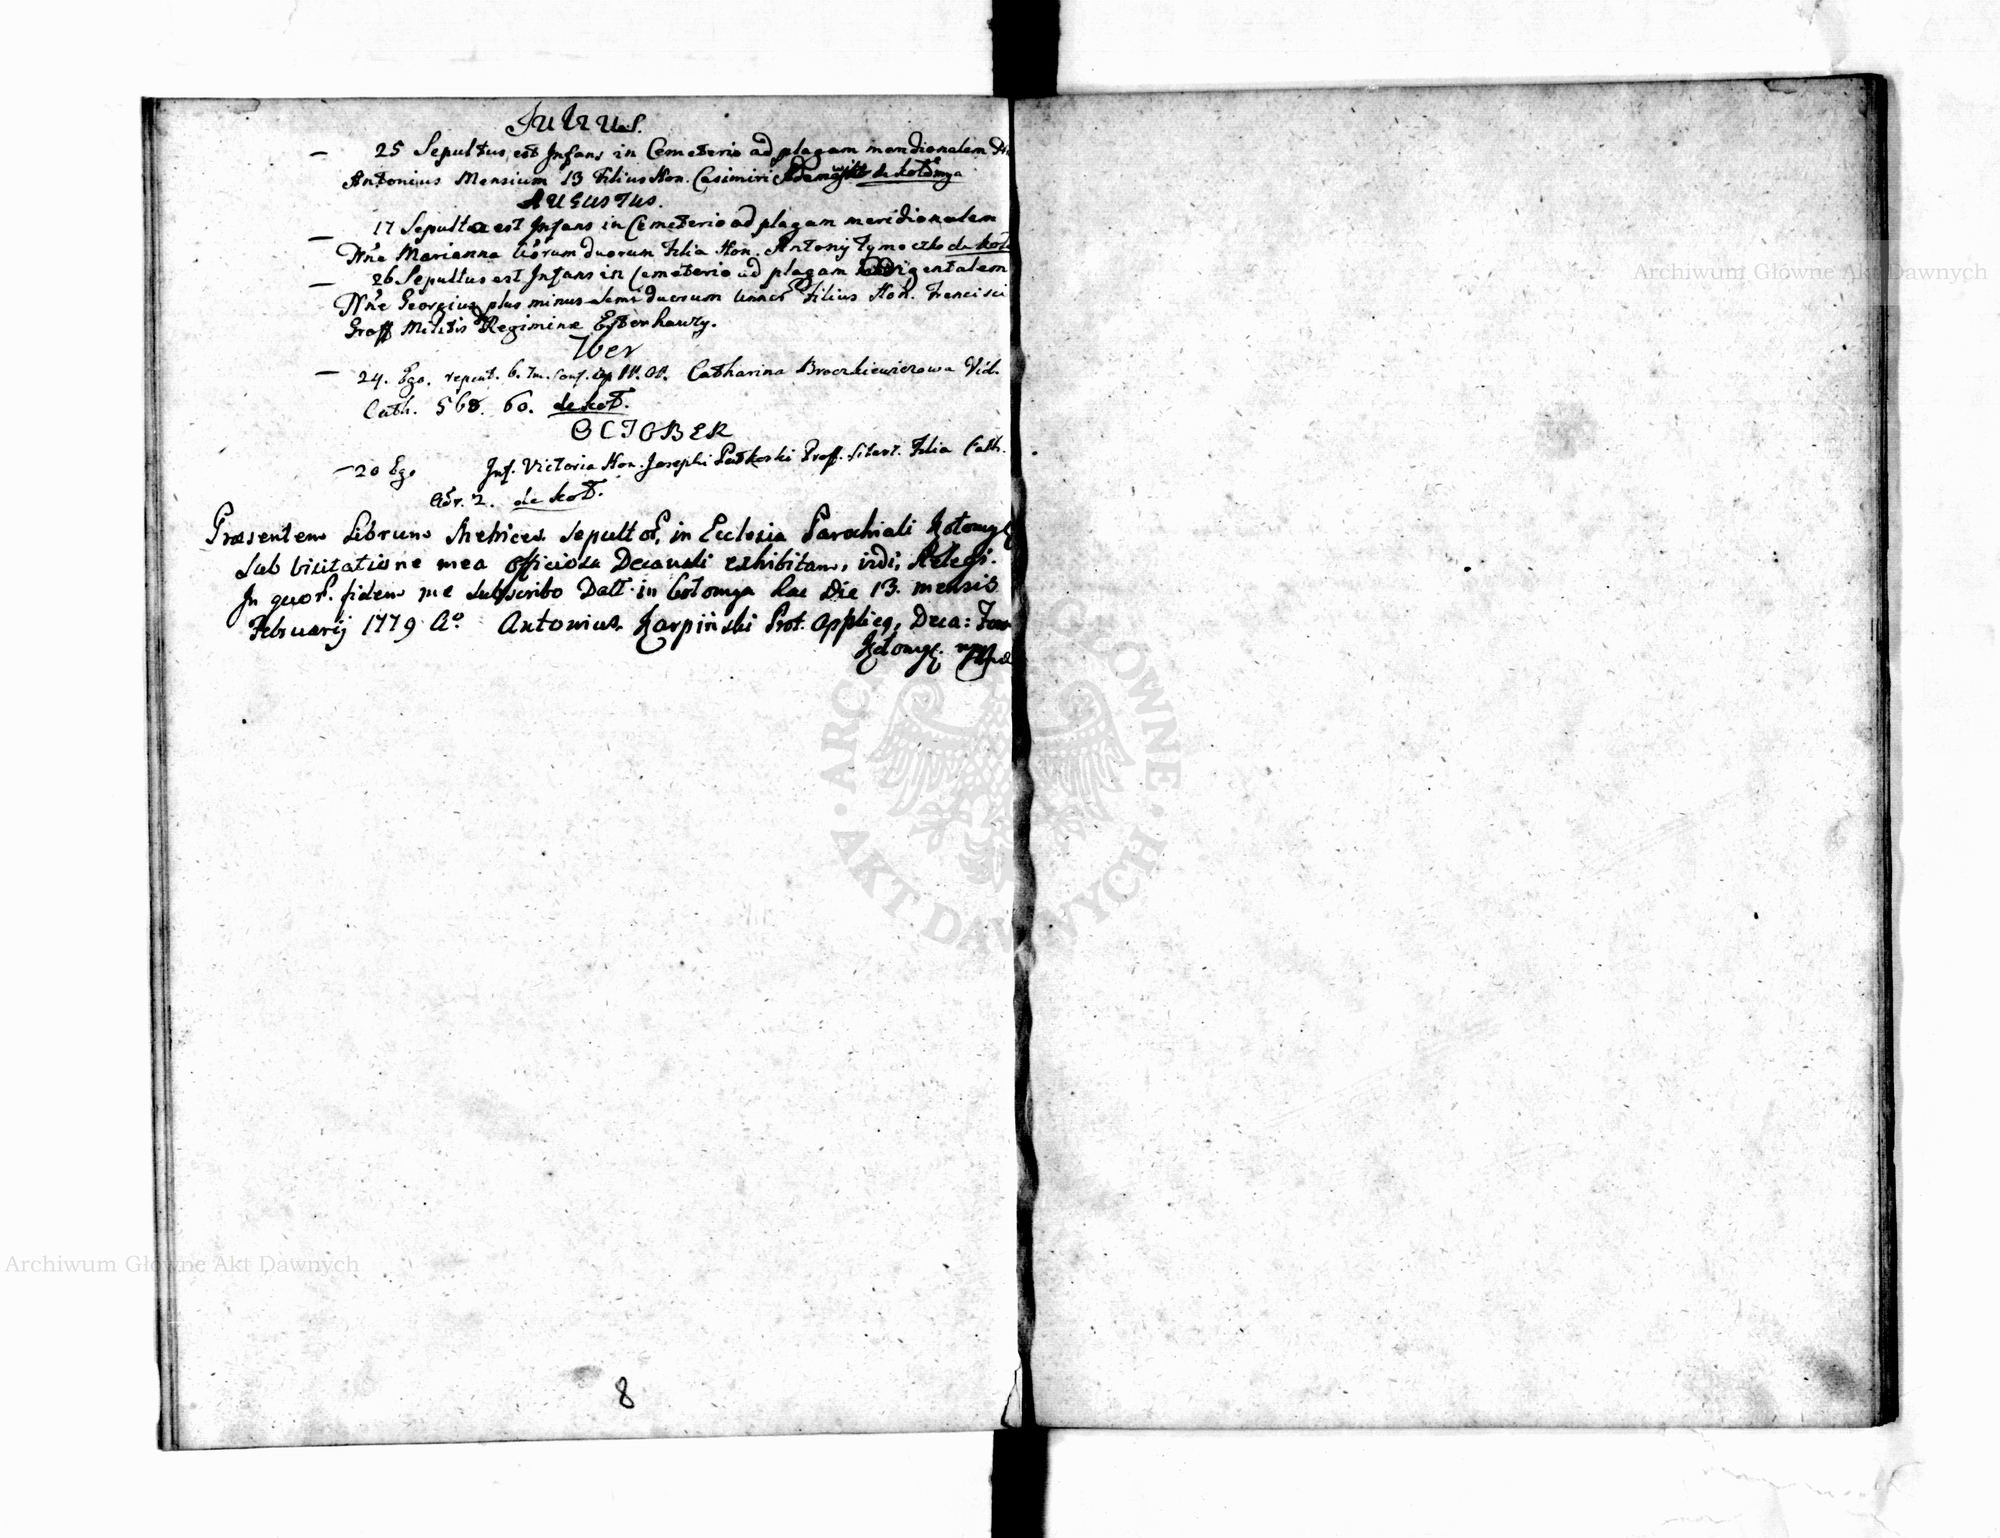 Julius.
– 25 Sepultus est Infans in Cemeterio ad plagam meridionalem
Antonius Mensium 13 Filius Hon. Casimiri de Kołomya
AUGUSTUS.
– 17 Sepulta est Infans in Cemeterio ad plagam meridionalem
Nne Marianna duorum Filia Hon. Antonij Tymoczko de Koł
– 26 Sepultus est Infans in Cemeterio ad plagam
Nne Georgius plus minus duorum Filius Hon. Francisci
Groff Militis Regiminæ Esterhauzy.
7ber
– 24. Ego. Catharina Broczkiewiczowa Vid.
Cath. 568. 60. de Koł.
OCTOBER
– 20 Ego Inf. Victoria Hon. Josephi Filia Cath.
2. de Koł.
Præsentem Librum Metrices Sepultor, in Ecclesia Parochiali Kołomy
Sub visitatione mea officiosa Decanali exhibitam, vidi, Relegi.
In quor. fidem me Subscribo Datt. in Cołomya hac Die 13. mensis
Februarij 1779 Ao Antonius Karpiński Prot. Applicq, Deca:
Kołomy. mpp
8
ARCHIWUM GŁÓWNE
AKT DAWNYCH
Archiwum Główne Akt Dawnych
Archiwum Główne Akt Dawnych